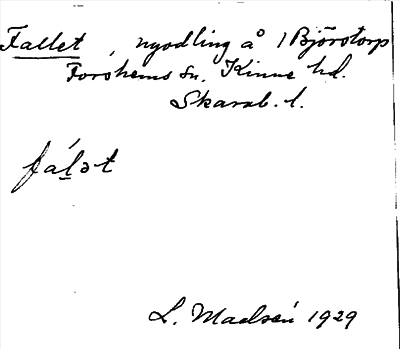 Fallet, nyodling å 1 Björstorp
Forshems sn. Kinne hd.
Skarab. l.
fálət
L. Madsén 1929